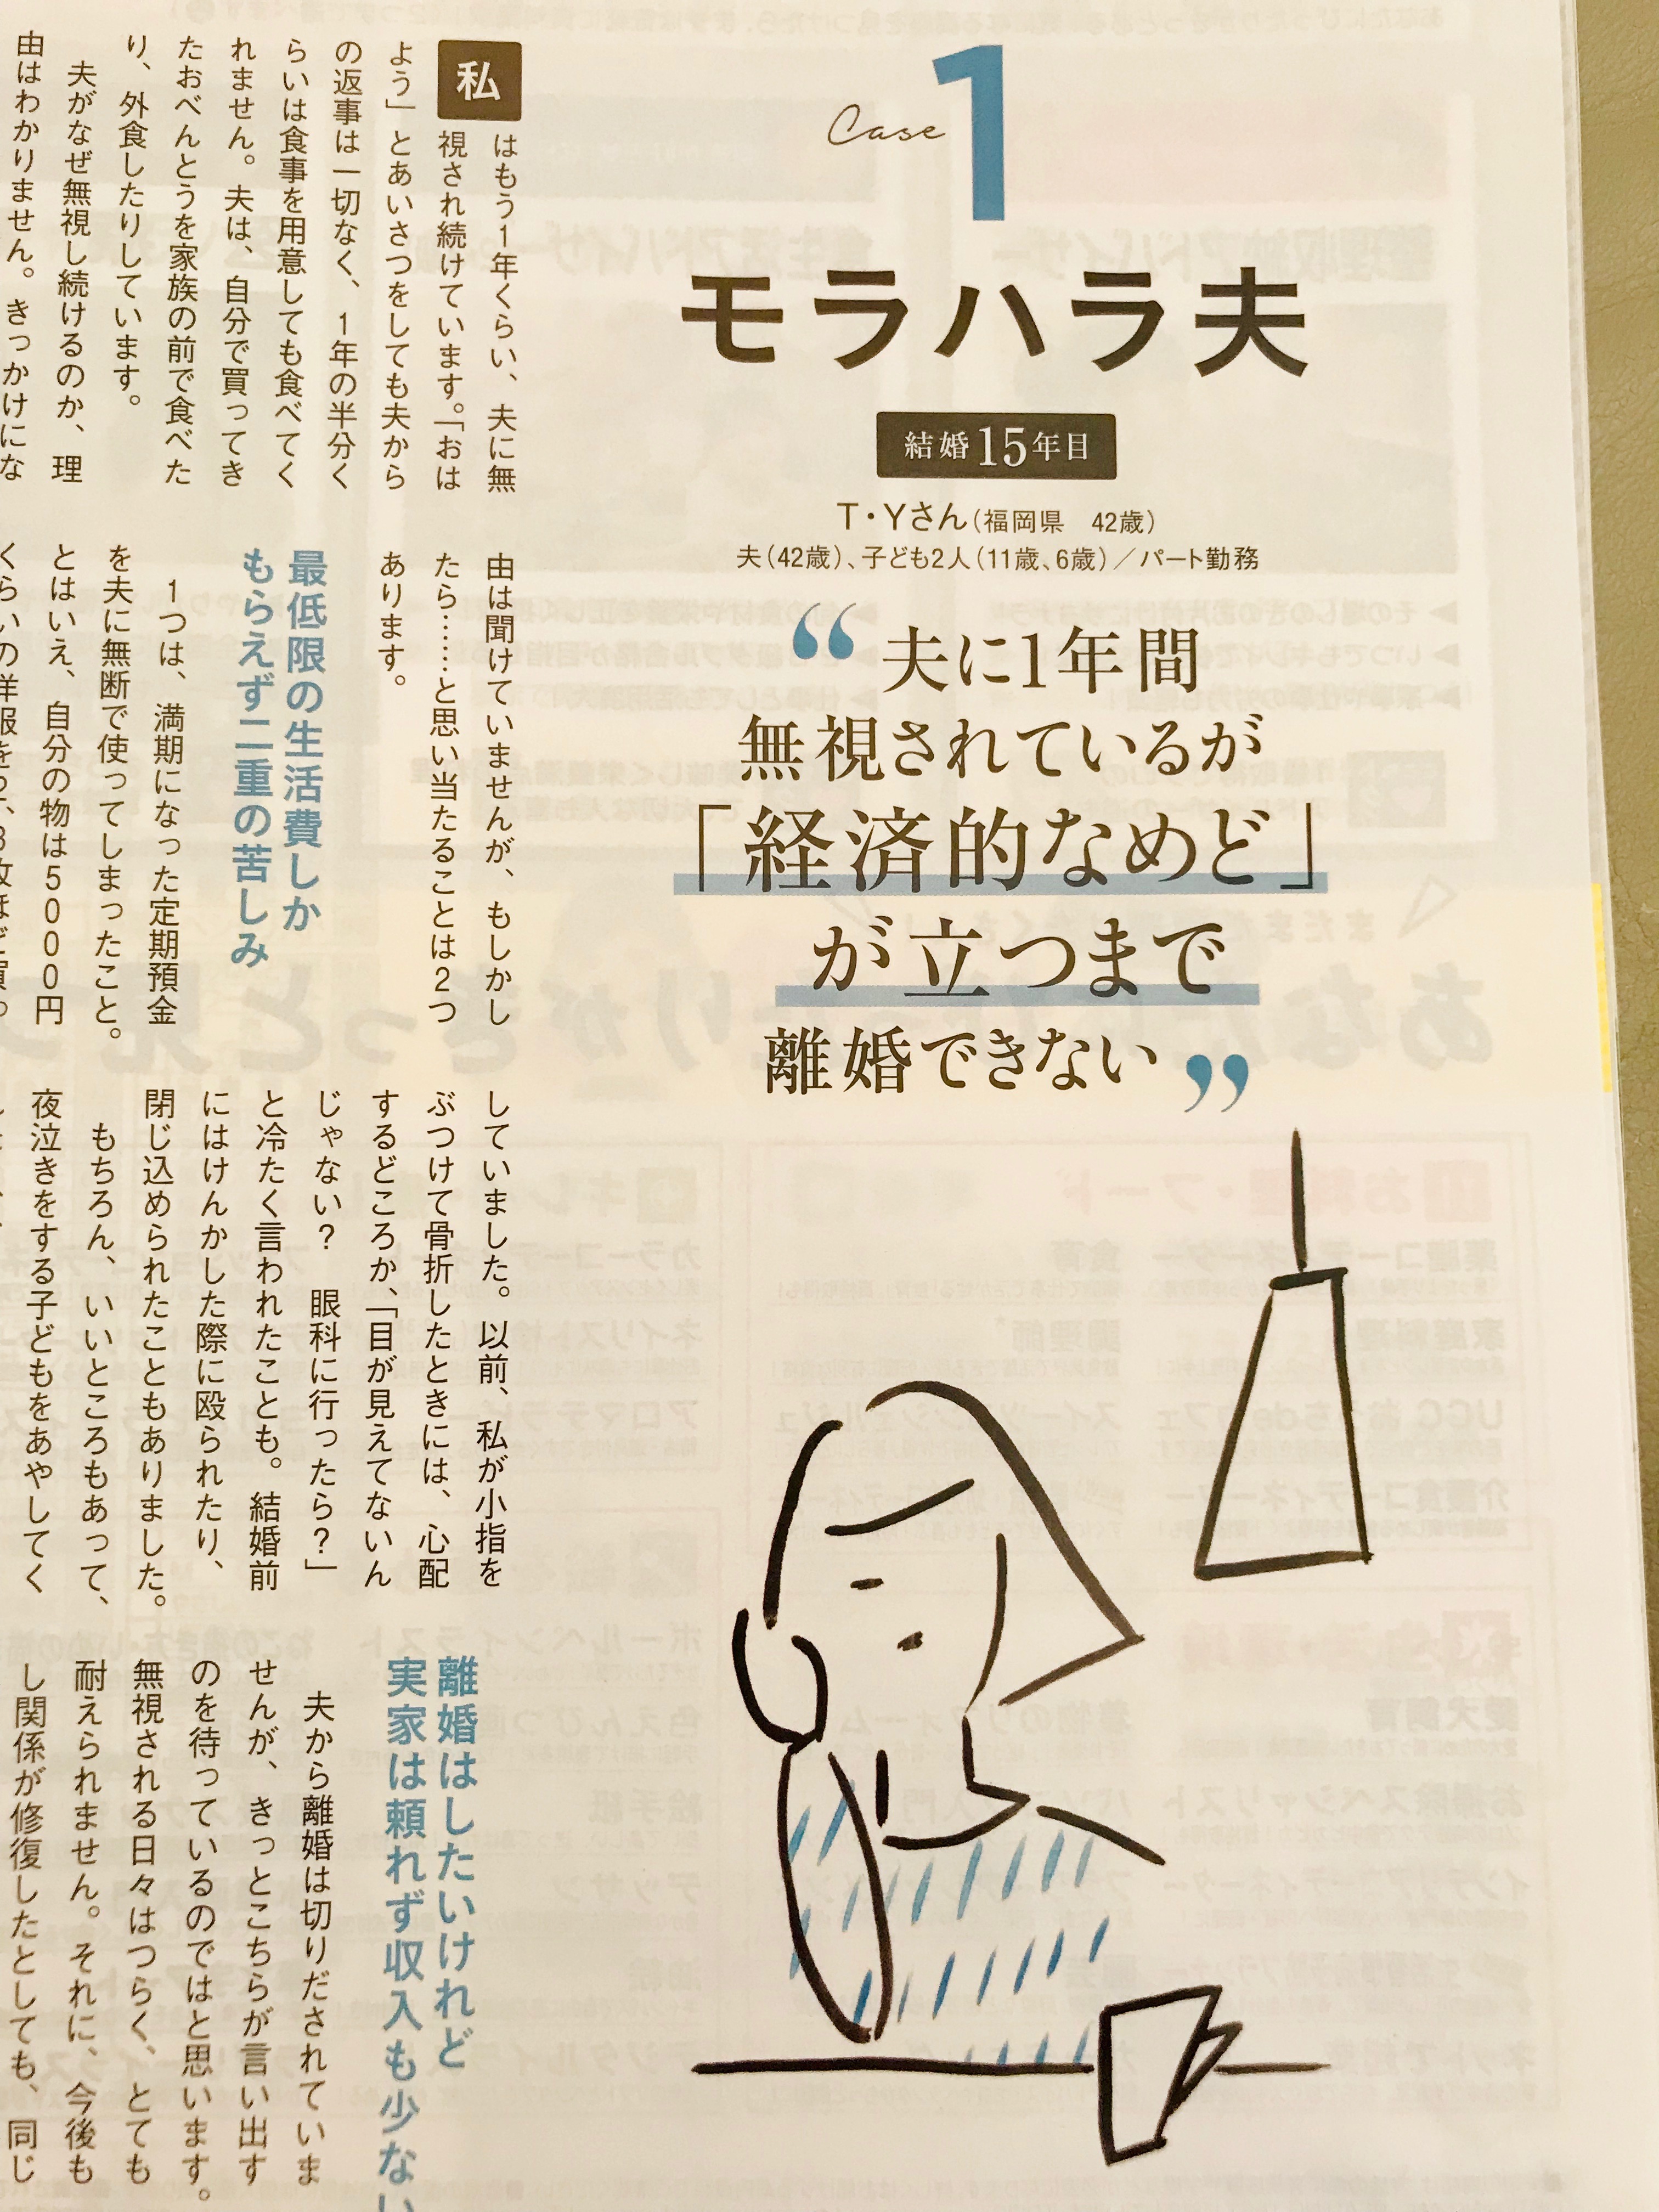 Case 1
モラハラ夫
結婚15年目
T・Yさん(福岡県 42歳)
夫(42歳)、子ども2人(11歳、6歳)/パート勤務
“夫に1年間
無視されているが
「経済的なめど」
が立つまで
離婚できない”
私はもう1年くらい、夫に無
視され続けています。「おは
よう」とあいさつをしても夫から
の返事は一切なく、1年の半分く
らいは食事を用意しても食べてく
れません。夫は、自分で買ってき
たおべんとうを家族の前で食べた
り、外食したりしています。
夫がなぜ無視し続けるのか、理
由はわかりません。きっかけにな
由は聞けていませんが、もしかし
たら……と思い当たることは2つ
あります。
最低限の生活費しか
もらえず二重の苦しみ
1つは、満期になった定期預金
を夫に無断で使ってしまったこと。
とはいえ、自分の物は5000円
くらいの洋服を
していました。以前、私が小指を
ぶつけて骨折したときには、心配
するどころか、「目が見えてないん
じゃない? 眼科に行ったら?」
と冷たく言われたことも。結婚前
にはけんかした際に殴られたり、
閉じ込められたこともありました。
もちろん、いいところもあって、
夜泣きをする子どもをあやしてく
離婚はしたいけれど
実家は頼れず収入も少ない
夫から離婚は切りだされていま
せんが、きっとこちらが言い出す
のを待っているのではと思います。
無視される日々はつらく、とても
耐えられません。それに、今後も
し関係が修復したとしても、同じ